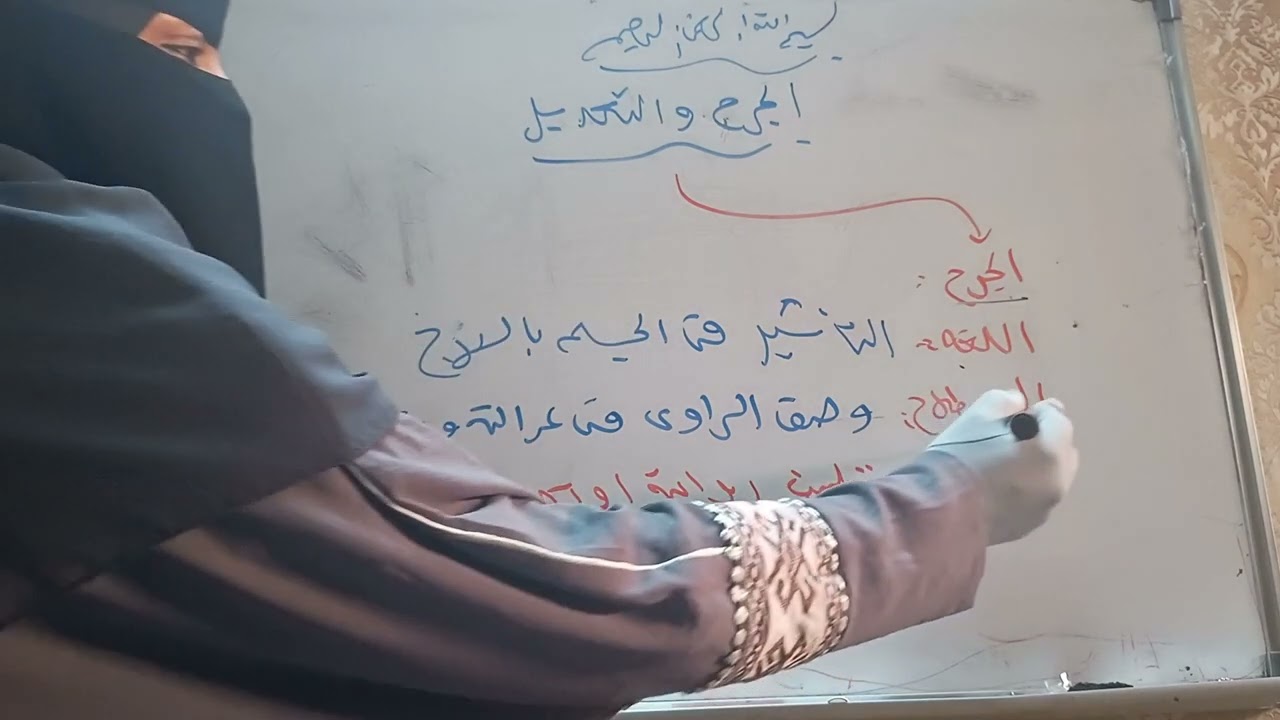 بسم الله الرحمن الرحيم
الجرح والتعديل
الجرح :
اللغة : التأثير في الجسم بالسلاح
وصف الراوي في عدالته و